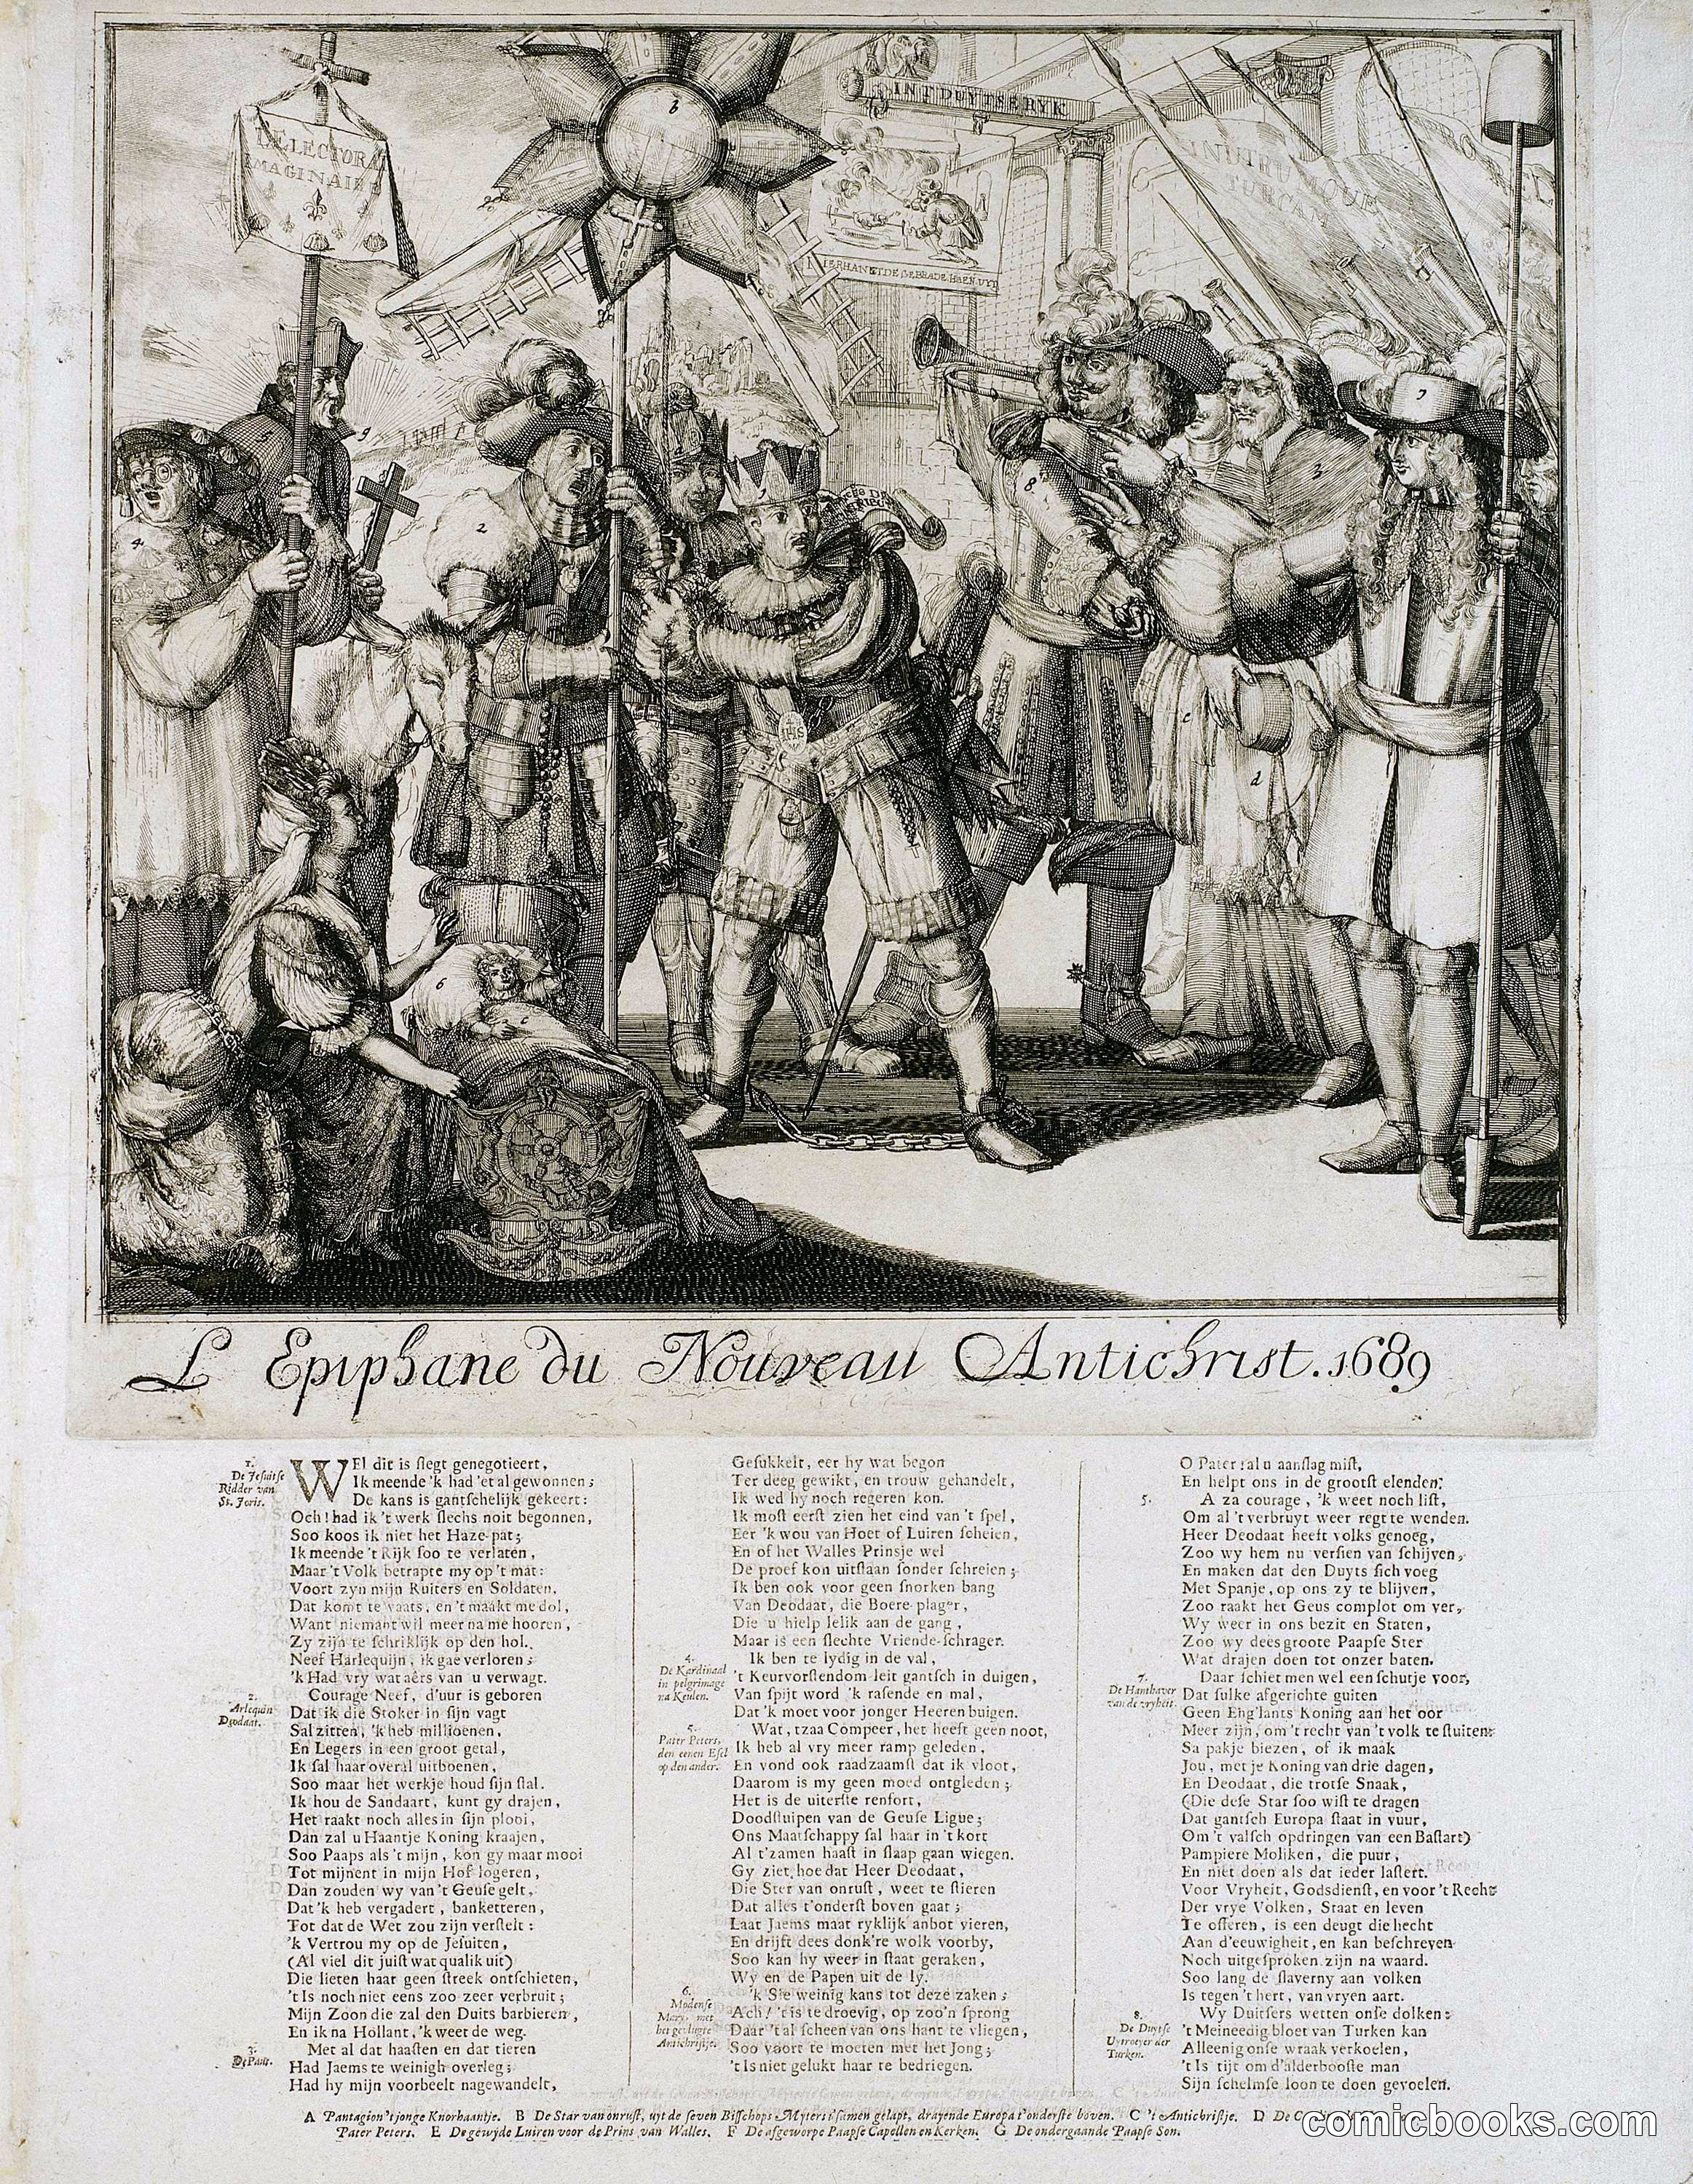 DELLECTOR
IMAGINAIRE
b
INT DUYTSE RYK
INDUTRUMQUE
TURCAM
HIER HANGT DE GEBRADE HAEN UYT
7
5
9
2
3
8
4
IHS
c
d
6
L Epiphane du Nouveau Antichrist. 1689
1.
De Jesuitse
Ridder van
St. Joris.
WEl dit is slegt genegotieert,
Ik meende 'k had 'et al gewonnen;
De kans is gantschelijk gekeert:
Och! had ik 't werk slechs noit begonnen,
Soo koos ik niet het Haze-pat;
Ik meende 't Rijk soo te verlaten,
Maar 't Volk betrapte my op 't mat:
Voort zyn mijn Ruiters en Soldaten,
Dat komt te vaats, en 't maakt me dol,
Want niemant wil meer na me hooren,
Zy zijn te schriklijk op den hol.
Neef Harlequijn, ik gae verloren;
'k Had vry wat aêrs van u verwagt.
2.
Arlequin
Deodaat.
Courage Neef, d'uur is geboren
Dat ik die Stoker in sijn vagt
Sal zitten, 'k heb millioenen,
En Legers in een groot getal,
Ik sal haar overal uitboenen,
Soo maar het werkje houd sijn stal.
Ik hou de Sandaart, kunt gy drajen,
Het raakt noch alles in sijn plooi,
Dan zal u Haantje Koning kraajen,
Soo Paaps als 't mijn, kon gy maar mooi
Tot mijnent in mijn Hof logeren,
Dan zouden wy van 't Geuse gelt,
Dat 'k heb vergadert, banketteren,
Tot dat de Wet zou zijn verstelt:
'k Vertrou my op de Jesuiten,
(Al viel dit juist wat qualik uit)
Die lieten haar geen streek ontschieten,
't Is noch niet eens zoo zeer verbruit;
Mijn Zoon die zal den Duits barbieren,
En ik na Hollant, 'k weet de weg.
3.
De Paus.
Met al dat haasten en dat tieren
Had Jaems te weinigh overleg;
Had hy mijn voorbeelt nagewandelt,
Gesukkelt, eer hy wat begon
Ter deeg gewikt, en trouw gehandelt,
Ik wed hy noch regeren kon.
Ik most eerst zien het eind van 't spel,
Eer 'k wou van Hoet of Luiren scheien,
En of het Walles Prinsje wel
De proef kon uitstaan sonder schreien;
Ik ben ook voor geen snorken bang
Van Deodaat, die Boere-plager,
Die u hielp lelik aan de gang,
Maar is een slechte Vriende-schrager.
4.
De Kardinaal
in pelgrimage
na Keulen.
Ik ben te lydig in de val,
't Keurvorstendom leit gantsch in duigen,
Van spijt word 'k rasende en mal,
Dat 'k moet voor jonger Heeren buigen.
5.
Pater Peters,
den eenen Esel
op den ander.
Wat, tzaa Compeer, het heeft geen noot,
Ik heb al vry meer ramp geleden,
En vond ook raadzaamst dat ik vloot,
Daarom is my geen moed ontgleden;
Het is de uiterste renfort,
Doodstuipen van de Geuse Ligue;
Ons Maatschappy sal haar in 't kort
Al t'zamen haast in slaap gaan wiegen.
Gy ziet, hoe dat Heer Deodaat,
Die Ster van onrust, weet te stieren
Dat alles t'onderst boven gaat;
Laat Jaems maar ryklijk anbot vieren,
En drijft dees donk're wolk voorby,
Soo kan hy weer in staat geraken,
Wy en de Papen uit de ly.
6.
Modense
Mary, met
het gevlugte
Antichristje.
'k Sie weinig kans tot deze zaken;
Ach! 't is te droevig, op zoo'n sprong
Daar 't al scheen van ons hant te vliegen,
Soo voort te moeten met het Jong;
't Is niet gelukt haar te bedriegen.
O Pater! al u aanslag mist,
En helpt ons in de grootst elenden:
5.
A za courage, 'k weet noch list,
Om al 't verbruyt weer regt te wenden.
Heer Deodaat heeft volks genoeg,
Zoo wy hem nu versien van schijven,
En maken dat den Duyts sich voeg
Met Spanje, op ons zy te blijven,
Zoo raakt het Geus complot om ver,
Wy weer in ons bezit en Staten,
Zoo wy dees groote Paapse Ster
Wat drajen doen tot onzer baten.
7.
De Hanthaver
van de vryheit.
Daar schiet men wel een schutje voor,
Dat sulke afgerichte guiten
Geen Eng'lants Koning aan het oor
Meer zijn, om 't recht van 't volk te stuiten:
Sa pakje biezen, of ik maak
Jou, met je Koning van drie dagen,
En Deodaat, die trotse Snaak,
(Die dese Star soo wist te dragen
Dat gantsch Europa staat in vuur,
Om 't valsch opdringen van een Bastart)
Pampiere Moliken, die puur,
En niet doen als dat ieder lastert.
Voor Vryheit, Godsdienst, en voor 't Recht
Der vrye Volken, Staat en leven
Te offeren, is een deugt die hecht
Aan d'eeuwigheit, en kan beschreven
Noch uitgesproken zijn na waard.
Soo lang de slaverny aan volken
Is tegen 't hert, van vryen aart.
8.
De Duytse
Uytroyer der
Turken.
Wy Duitsers wetten onse dolken:
't Meineedig bloet van Turken kan
Alleenig onse wraak verkoelen,
't Is tijt om d'alderbooste man
Sijn schelmse loon te doen gevoelen.
A Pantagion 't jonge Knorhaantje. B De Star van onrust, uyt de seven Bisschops Myters t'samen gelapt, drayende Europa t'onderste boven. C 't Antichristje. D De
Pater Peters. E De gewyde Luiren voor de Prins van Walles. F De afgeworpe Paapse Capellen en Kerken. G De ondergaande Paapse Son.
comicbooks.com